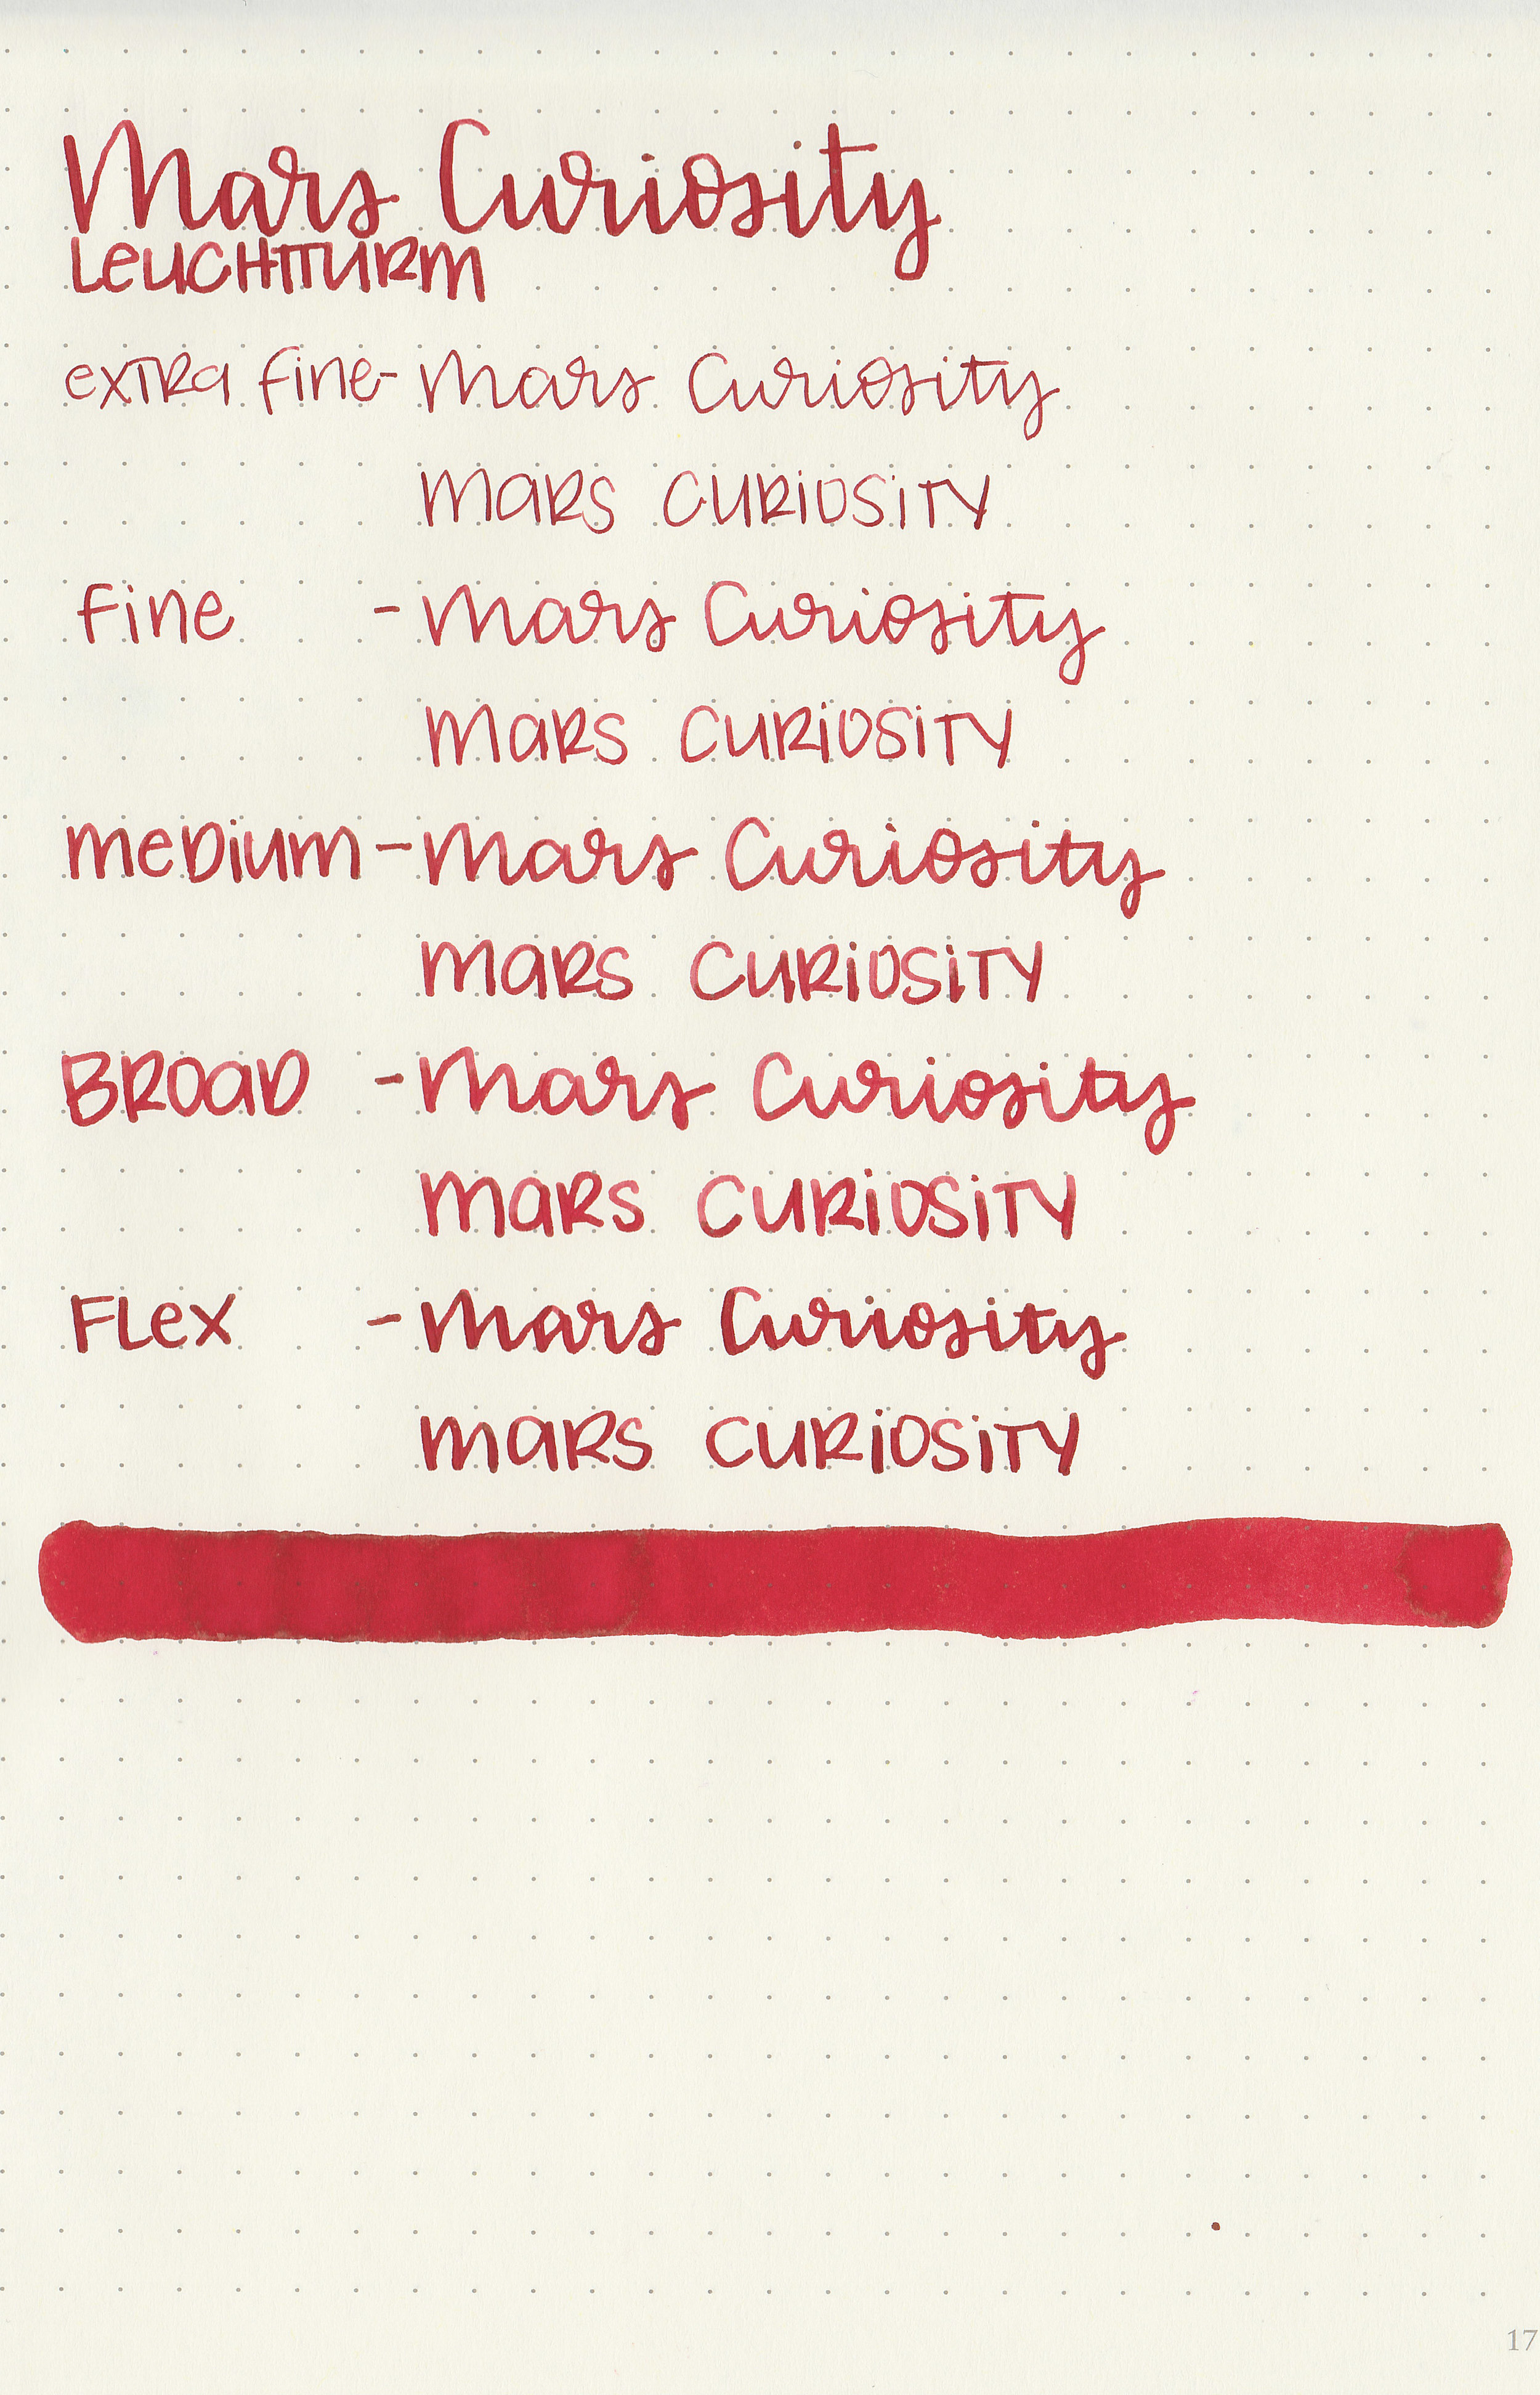 Mars Curiosity
LEUCHTTURM
extra fine - Mars Curiosity
MARS CURIOSITY
fine - Mars Curiosity
MARS CURIOSITY
medium - Mars Curiosity
MARS CURIOSITY
BROAD - Mars Curiosity
MARS CURIOSITY
FLEX - Mars Curiosity
MARS CURIOSITY
17